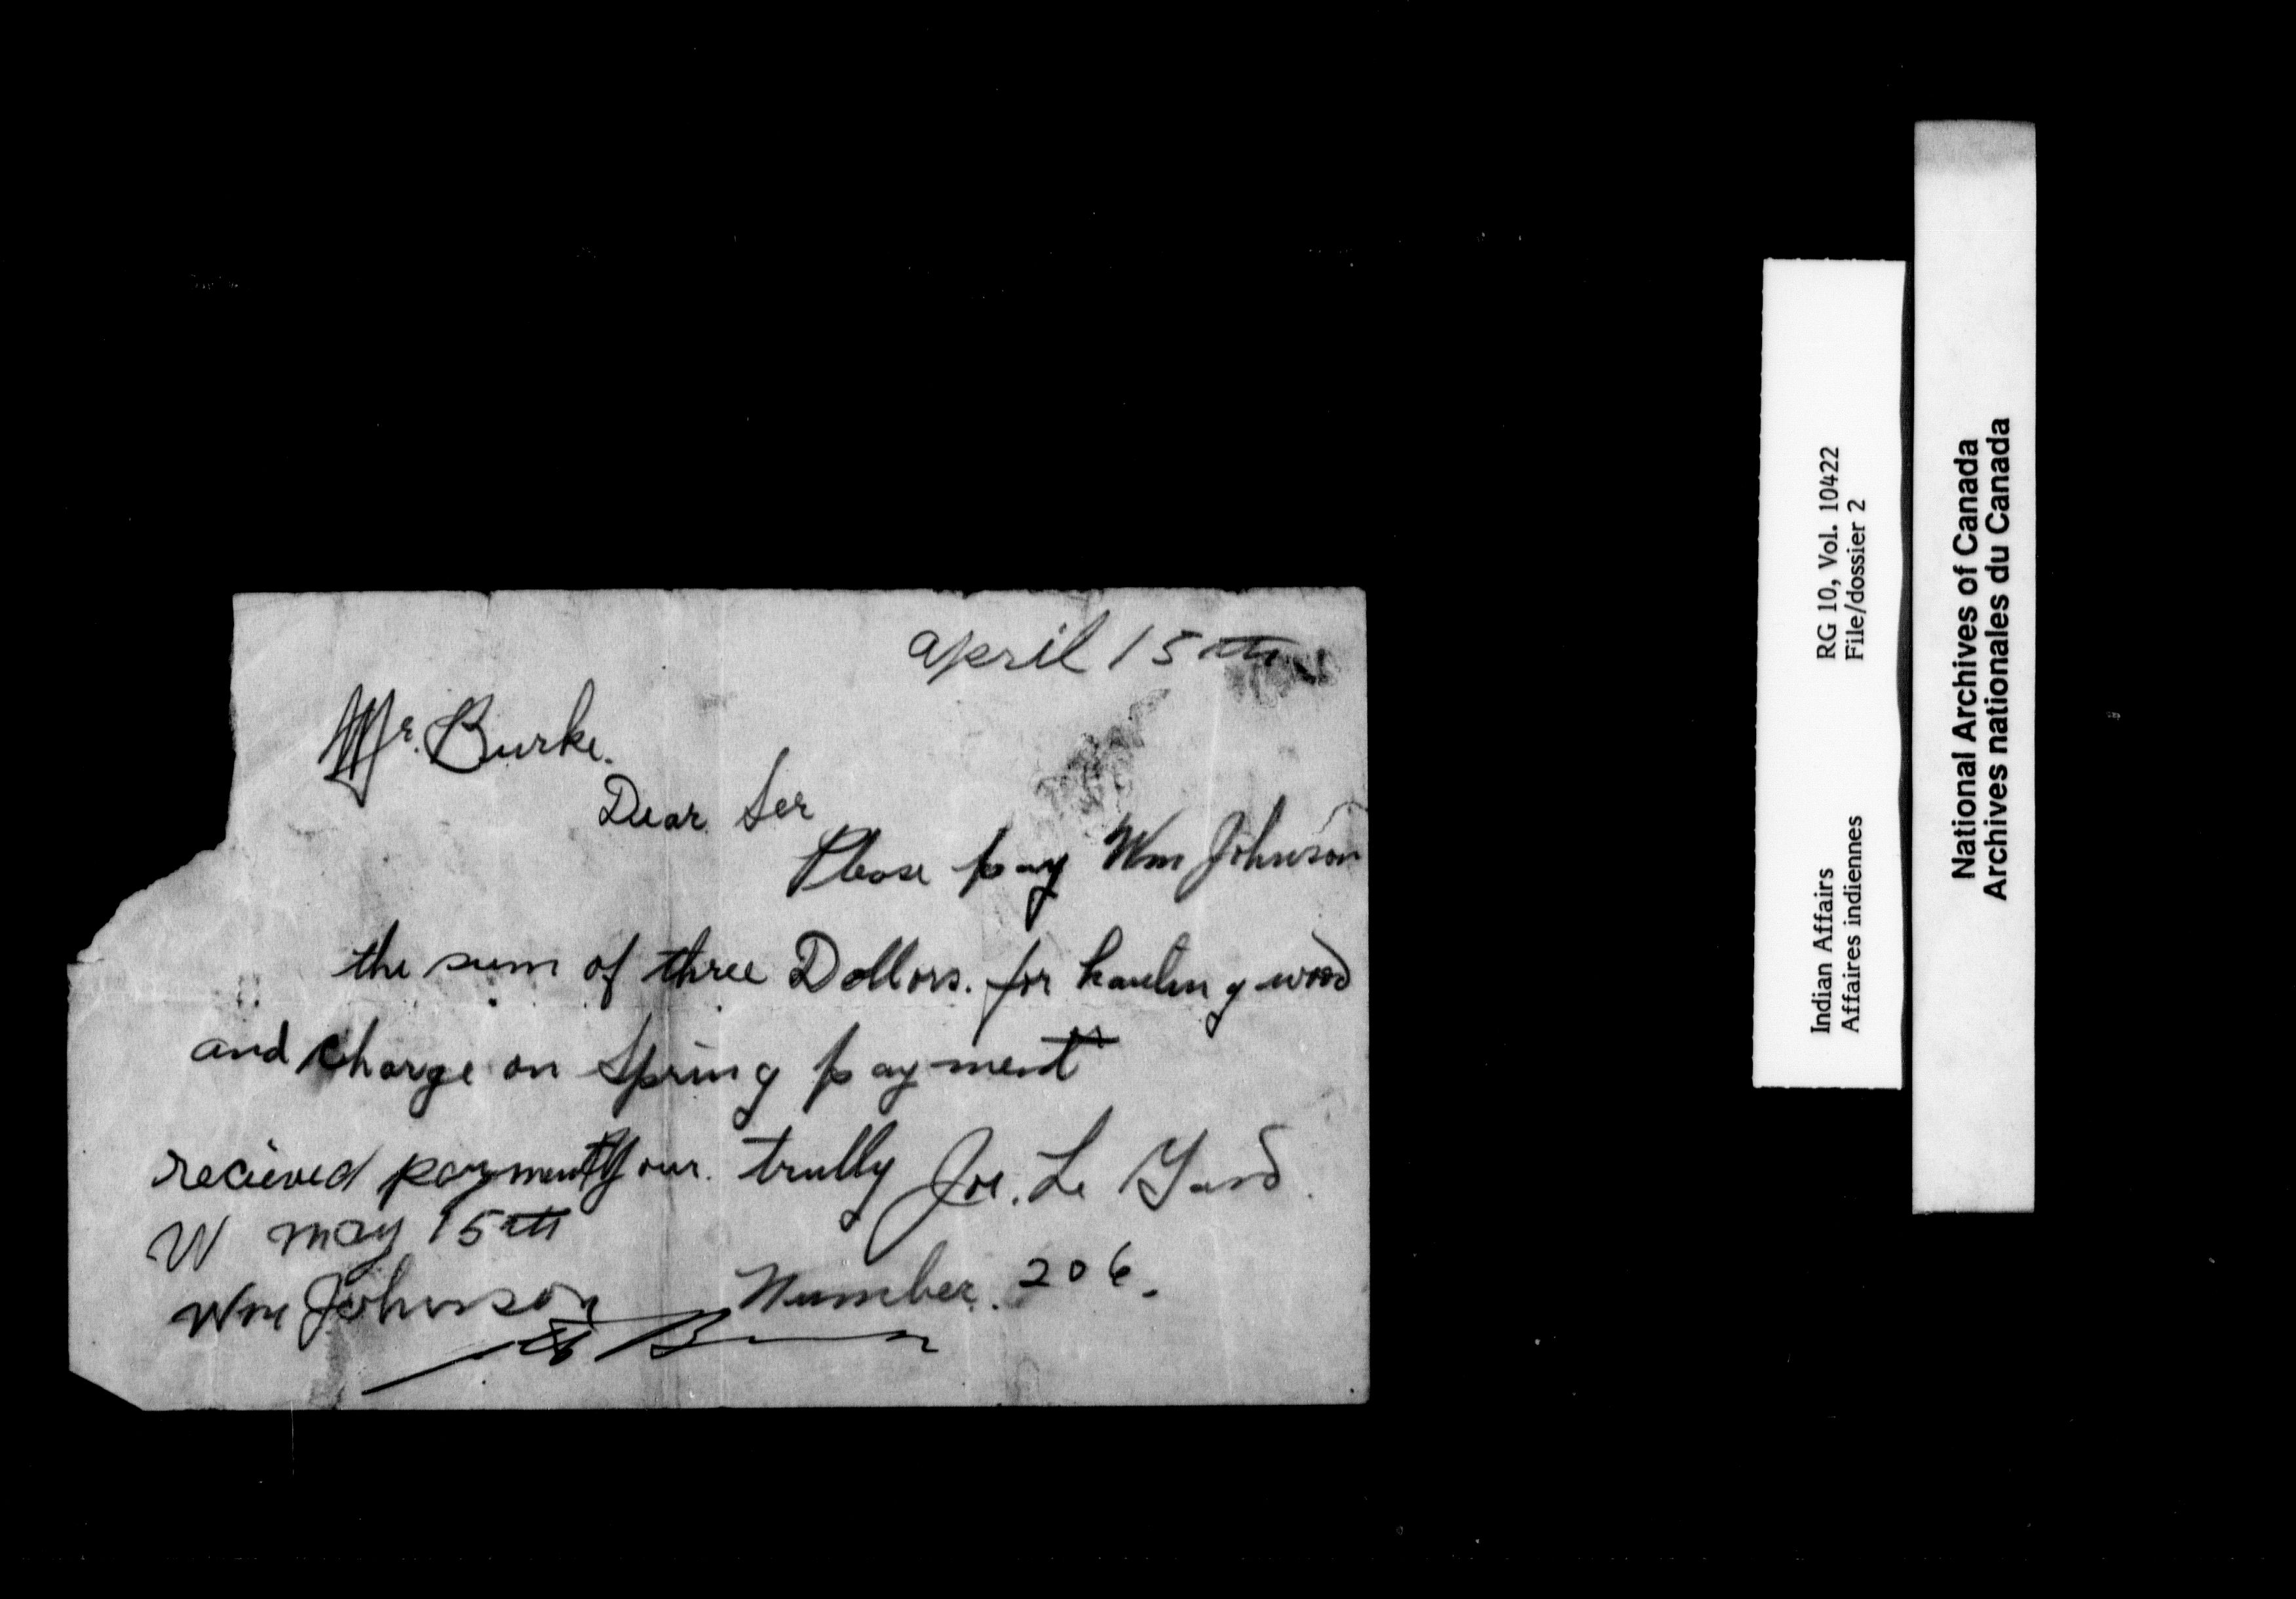 april 15th
Mr. Burke.
Dear Ser
Please pay Wm Johnson
the sum of three Dollars. for hauling wood
and charge on Spring payment
recieved payment Your. trully Joe. Le Gard.
W may 15th
Wm Johnson Number. 206.
Indian Affairs RG 10, Vol. 10422
Affaires indiennes File/dossier 2
National Archives of Canada
Archives nationales du Canada